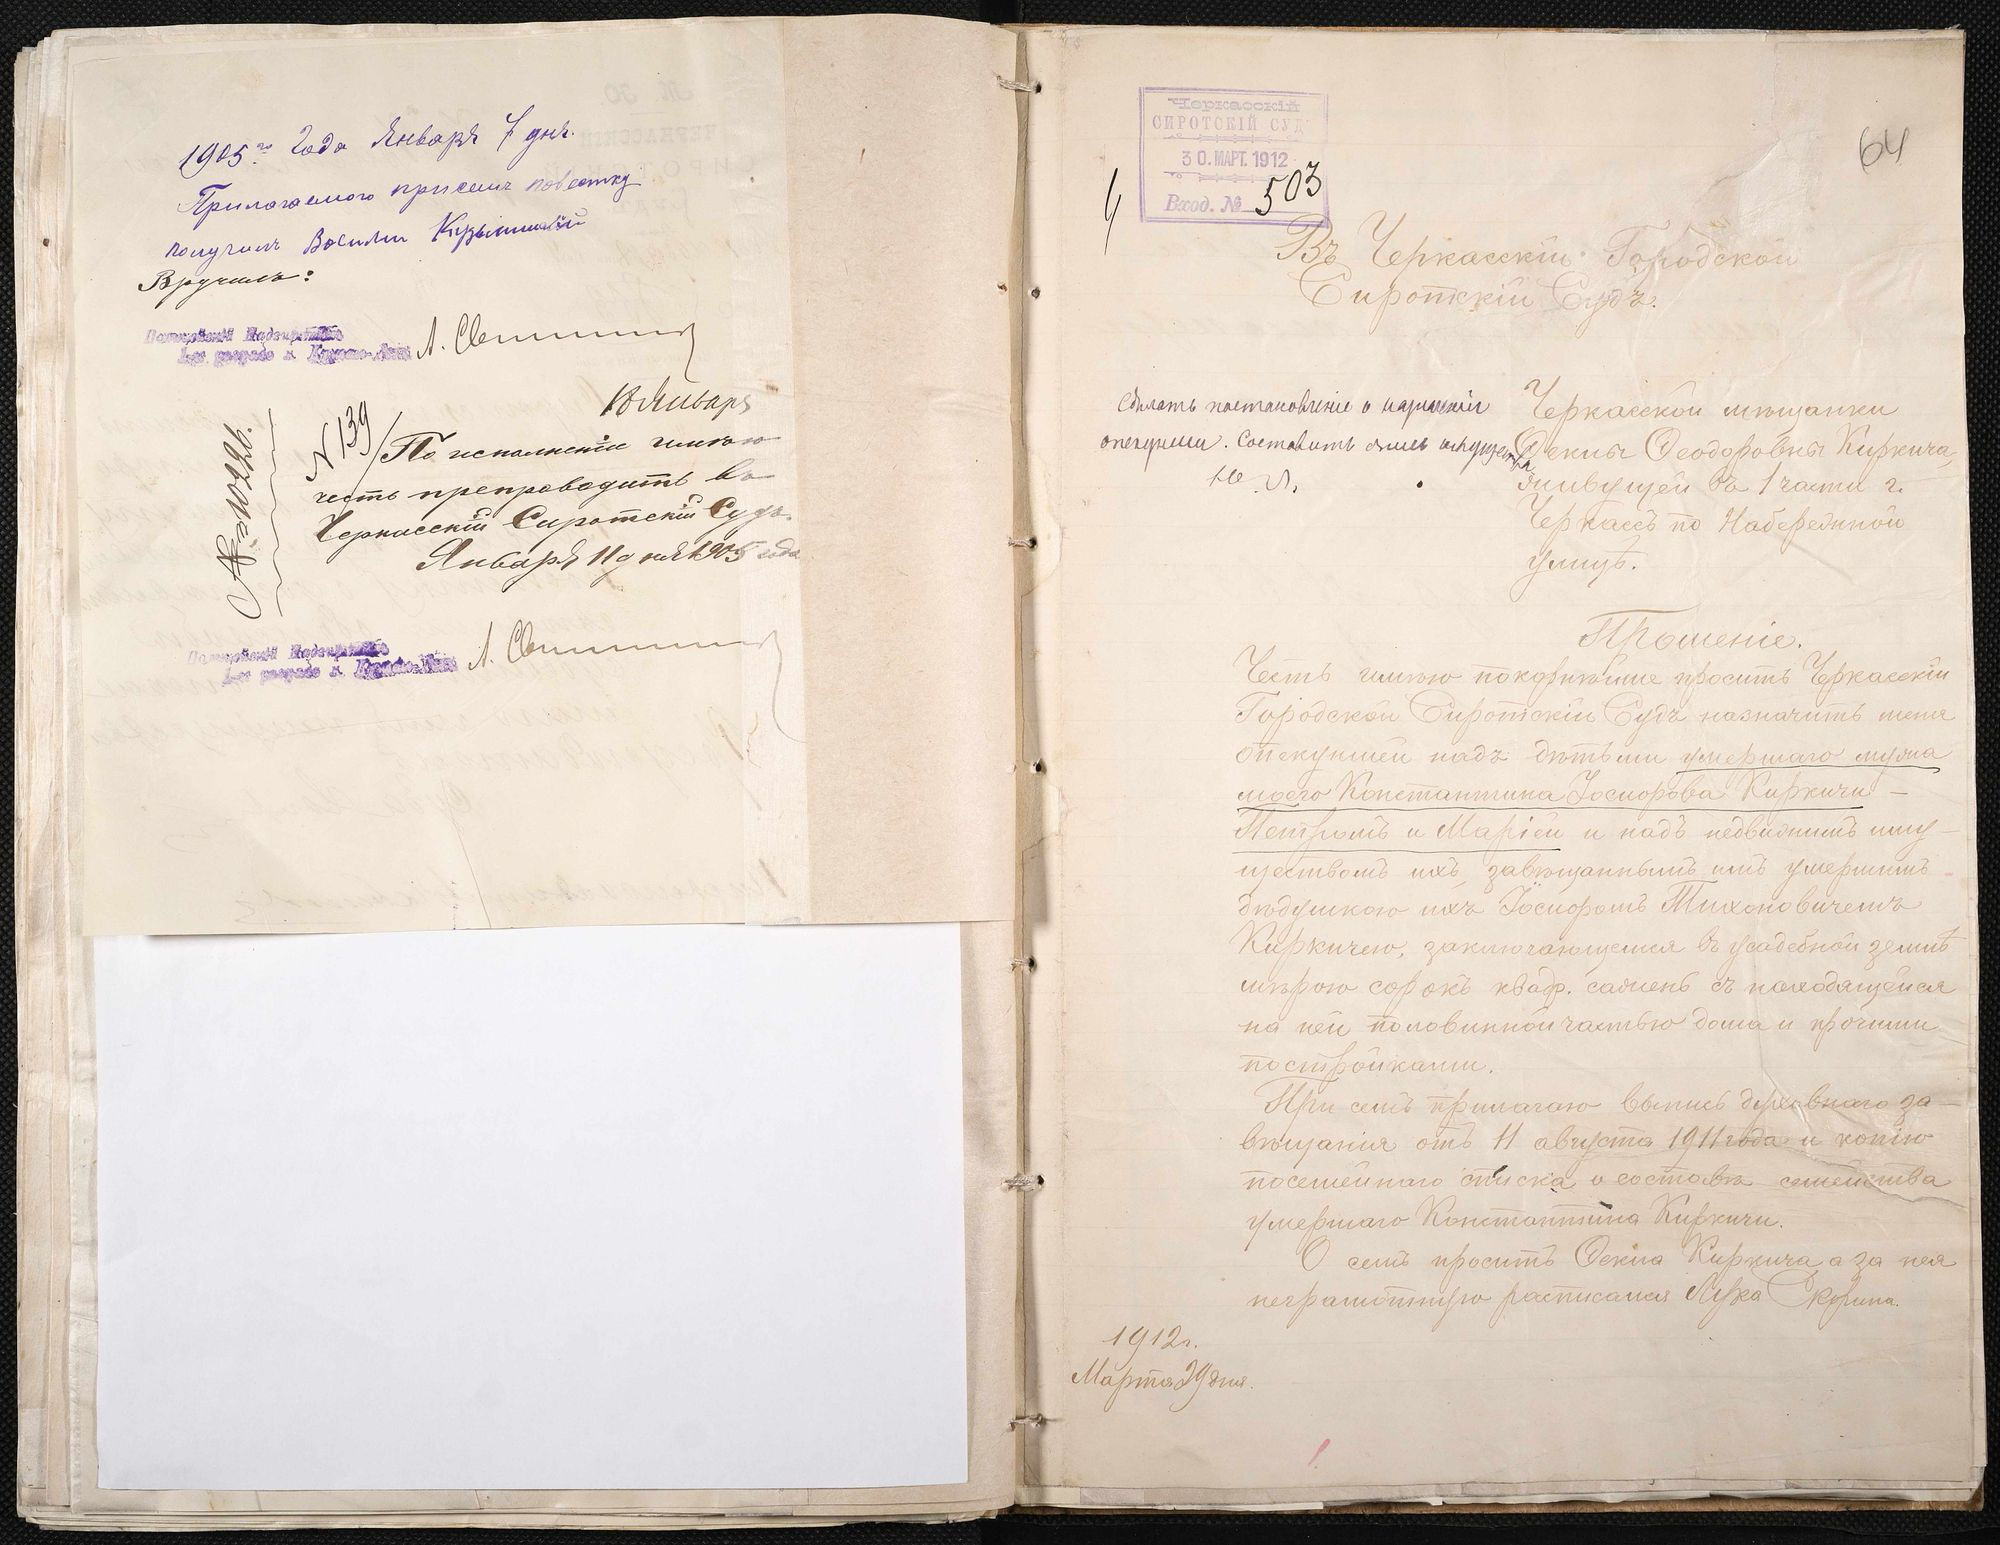 1905го года Января 7 дня.
Прилагаемого присемъ повестку
получилъ Василии
Вручилъ:
Полицейскій Надзиратель
А.
10 Января
№ 139
№ 1022
По исполненіи имѣю
честь препроводить въ
Черкасскій Сиротскій Судъ.
Января 11 дня 1905 года
Полицейскій Надзиратель
А.
Черкасскій
СИРОТСКІЙ СУДЪ
30. МАРТ. 1912
Вход. № 503
64
Въ Черкасскій Городской
Сиротскій Судъ.
Сдѣлать постановленіе о назначеніи
опекунши. Составить опись имущества
Черкасской мѣщанки
Ѳеклы Ѳеодоровны Киркича,
живущей въ 1 части г.
Черкассъ по Набережной
улицѣ.
Прошеніе.
Честь имѣю покорнѣйше просить Черкасскій
Городской Сиротскій Судъ назначить меня
опекуншей надъ дѣтьми умершаго мужа
моего Константина Іосифова Киркичи –
Петромъ и Маріей и надъ недвижимъ иму-
ществомъ ихъ, завѣщаннымъ имъ умершимъ
дѣдушкою ихъ Іосифомъ Тихоновичемъ
Киркичею, заключающемся въ усадебной землѣ
мѣрою сорокъ квадр. сажень съ находящейся
на ней половинной частью дома и прочими
постройками.
При семъ прилагаю выпись духовнаго за-
вѣщанія отъ 11 августа 1911 года и копію
посемейнаго списка о составѣ семейства
умершаго Константина Киркичи.
О семъ проситъ Ѳекла Киркича а за нея
неграмотную расписался Лука Скорина.
1912 г.
Марта 29 дня.